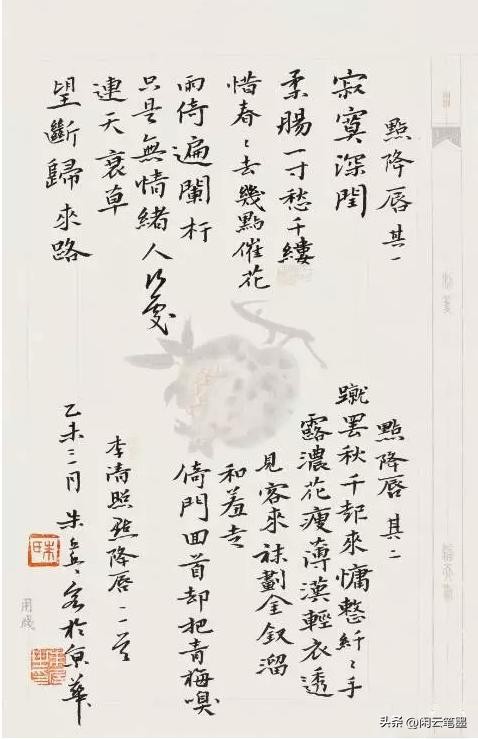 點降唇 其一
寂寞深閨
柔腸一寸愁千縷
惜春〻去幾點催花
雨倚遍闌杆
只是無情緒人何處
連天衰草
望斷歸來路
點降唇 其二
蹴罷秋千起來慵整纤〻手
露濃花瘦薄漢輕衣透
見客來袜劃金釵溜
和羞走
倚門回首却把青梅嗅
李清照點降唇二首
乙未三月 朱 於京華
用箋
头条 @闲云笔墨